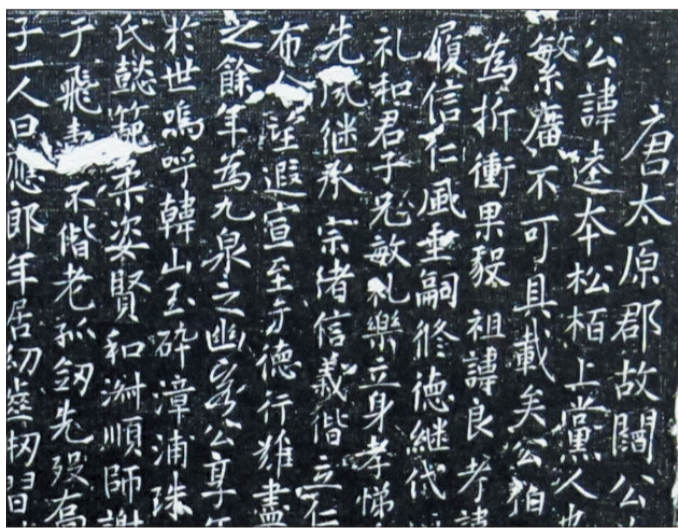 唐太原郡故闗公
公諱逵本松栢上黨人
繁廡不可具載矣公
為折衝果毅祖諱良考諱
履信仁風垂嗣修德継代
礼和君子兄敏礼樂立身孝悌
先風継承宗緒信義偕立仁
布人望遐宣至方德行雖盡
之餘年為九泉之幽客公享年
於世嗚呼韓山玉碎漳浦珠
氏懿範柔姿賢和淋順師謝
于飛不偕老孤劒先殁
子一人曰應郎年居幼